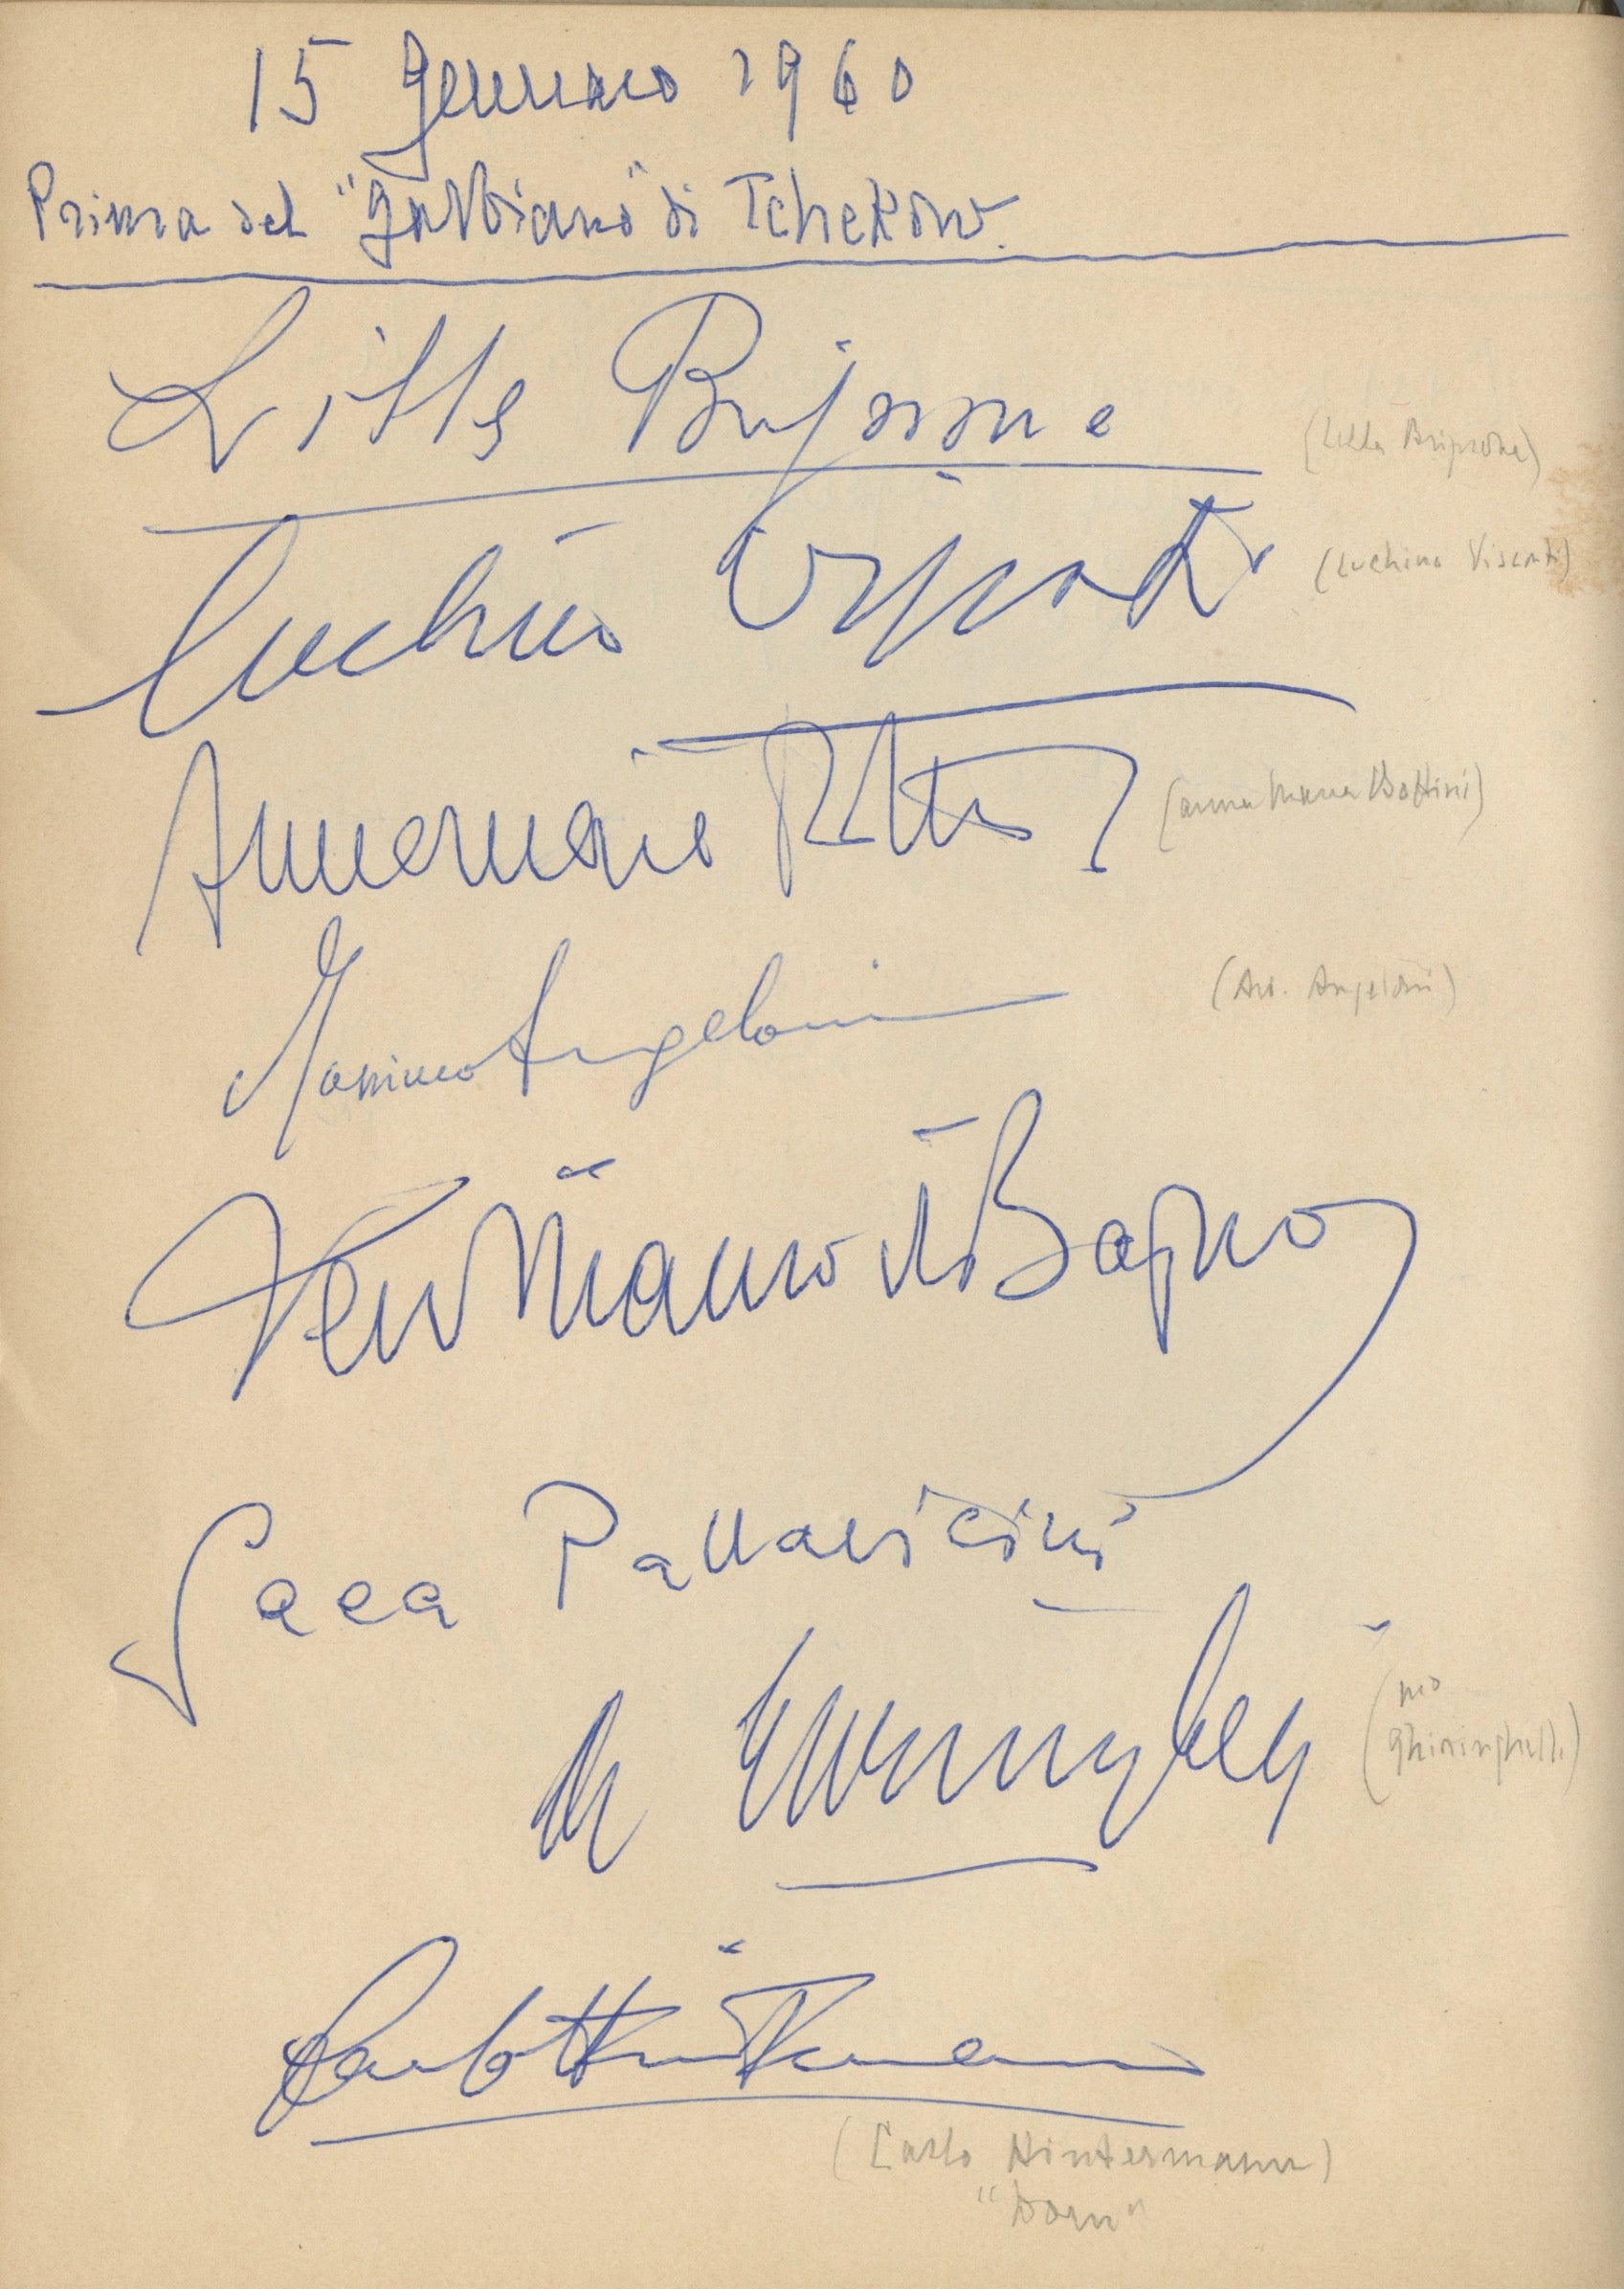 15 Gennaio 1960
Prima del "Gabbiano" di Tchekow.
Lilla Brignone
(Lilla Brignone)
Luchino Visconti
(Luchino Visconti)
Annamaria Bottini
(Anna Maria Bottini)
Massimo Angeloni
(Avv. Angeloni)
di Bagno
Gaea Pallavicini
Ghiringhelli
(
Ghiringhelli)
Carlo Hintermann
(Carlo Hintermann)
"Dorn"